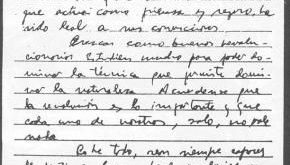 que actúa como piensa y, seguro, ha
sido leal a sus convicciones.
Crezcan como buenos revolu-
cionarios. Estudien mucho para poder do-
minar la técnica que permite domi-
nar la naturaleza. Acuérdense que
la revolución es lo importante y que
cada uno de nosotros, solo, no vale
nada.
Sobre todo, sean siempre capaces